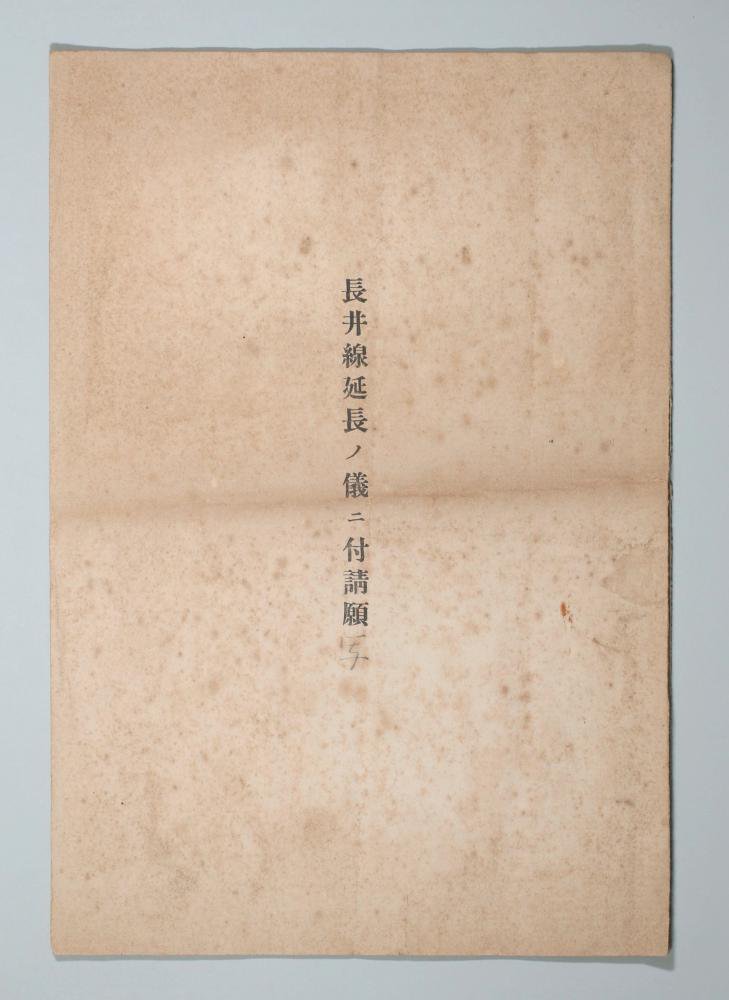 長井線延長ノ儀ニ付請願写